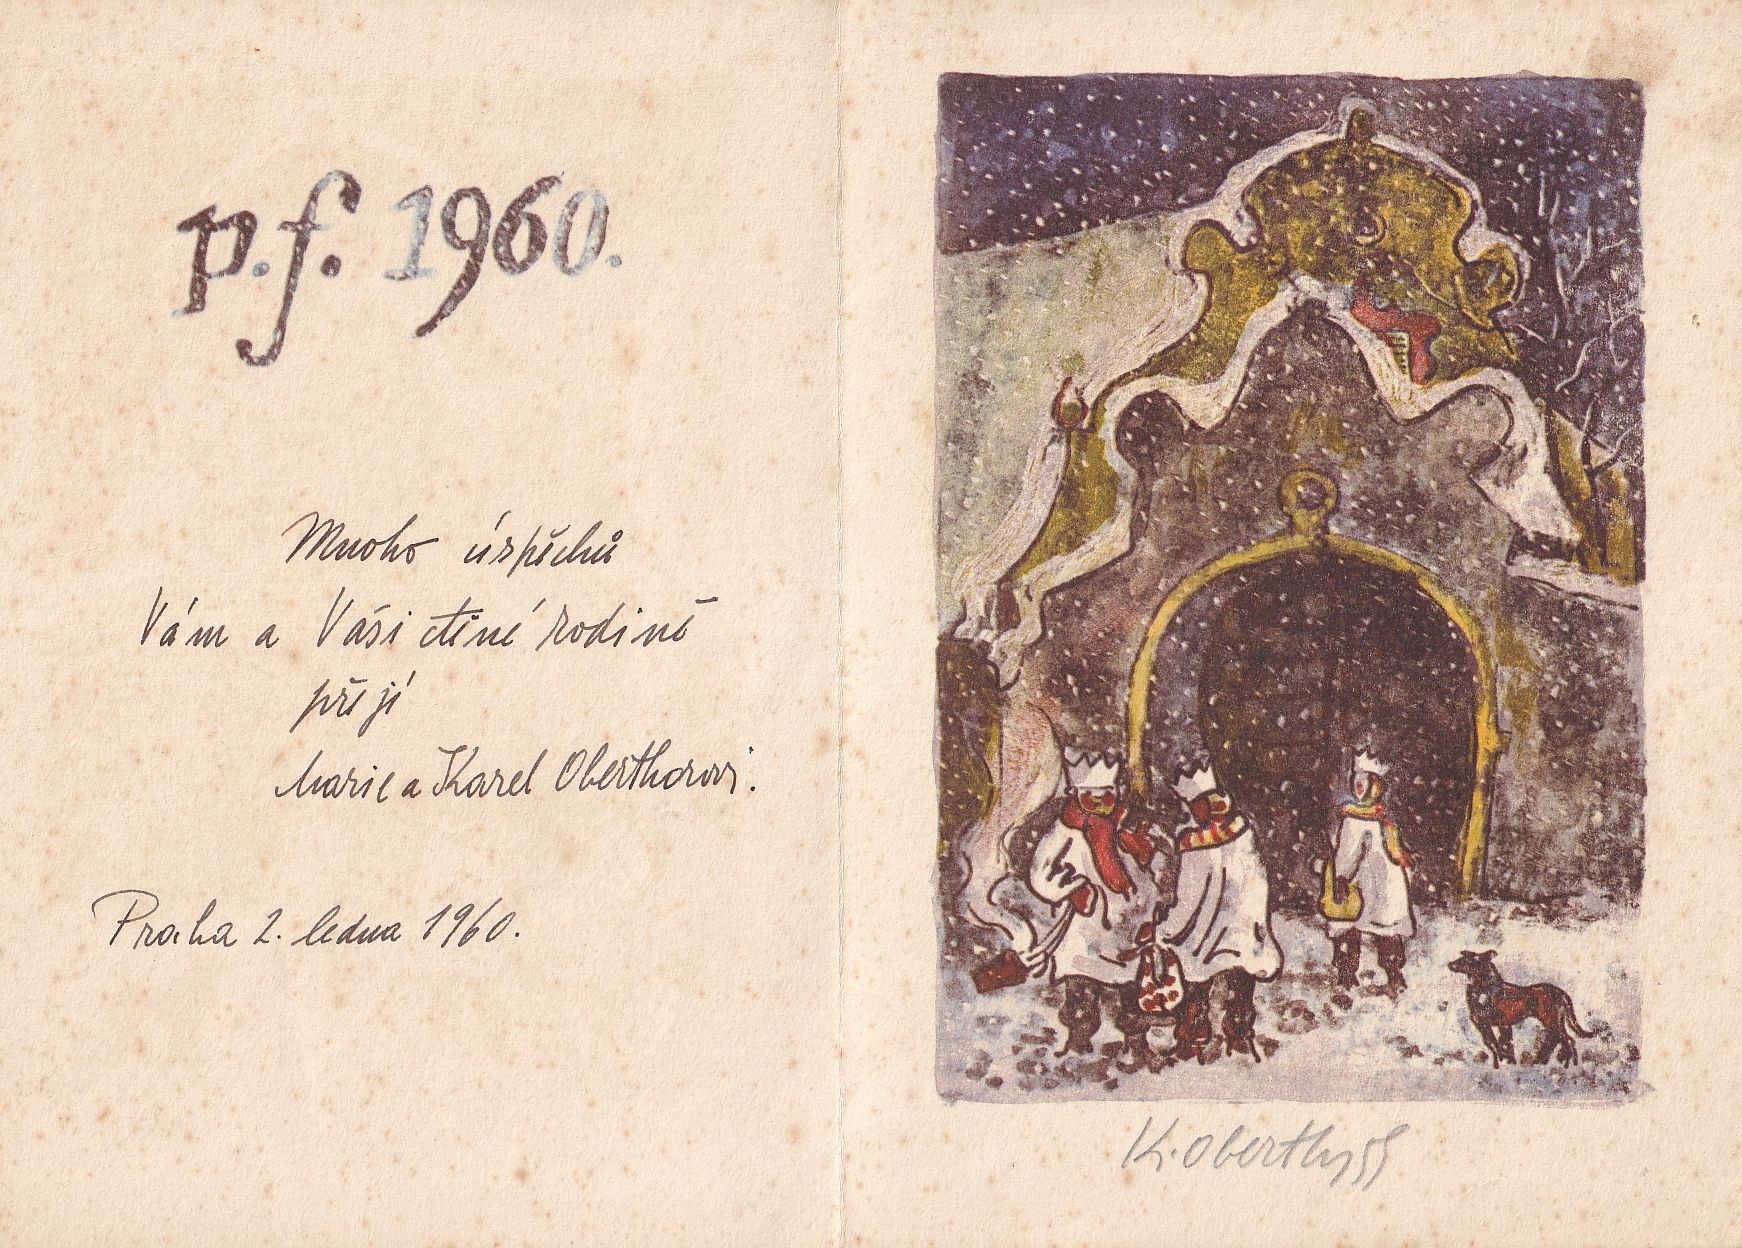 p.f. 1960.
Mnoho úspěchů
Vám a Vaši ctěné rodině
přejí
Marie a Karel Oberthorovi.
Praha 2. ledna 1960.
K. Oberthor